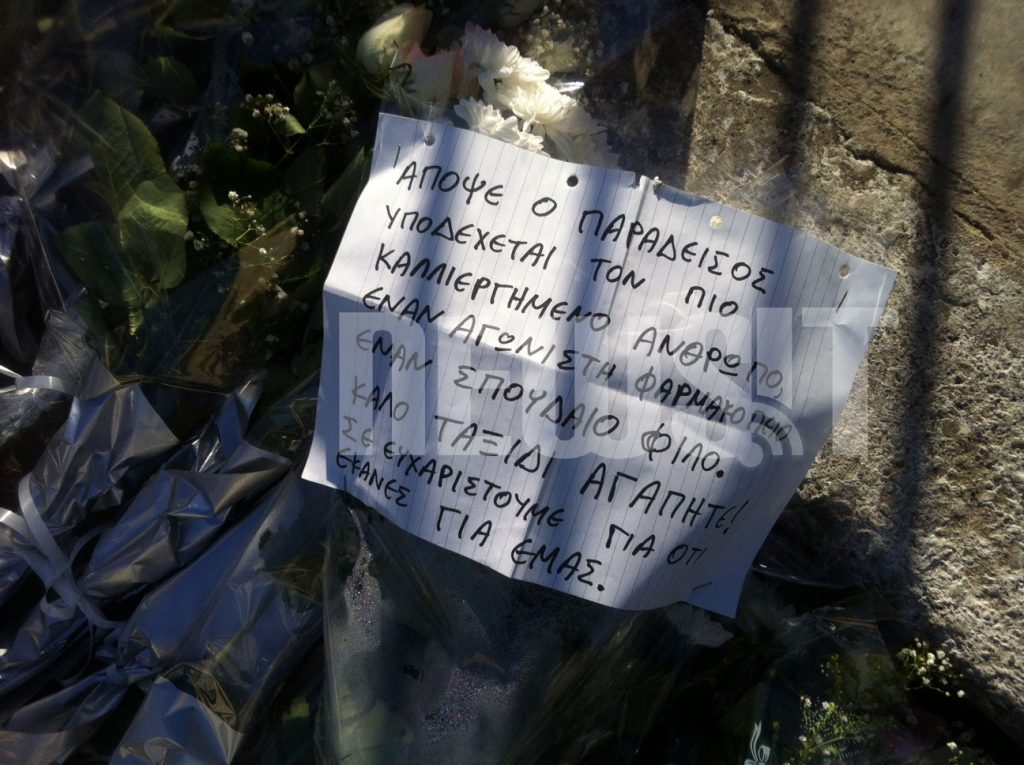 ΑΠΟΨΕ Ο ΠΑΡΑΔΕΙΣΟΣ
ΥΠΟΔΕΧΕΤΑΙ ΤΟΝ ΠΙΟ
ΚΑΛΛΙΕΡΓΗΜΕΝΟ ΑΝΘΡΩΠΟ,
ΕΝΑΝ ΑΓΩΝΙΣΤΗ ΦΑΡΜΑΚΟΠΟΙΟ
ΕΝΑΝ ΣΠΟΥΔΑΙΟ ΦΙΛΟ.
ΚΑΛΟ ΤΑΞΙΔΙ ΑΓΑΠΗΤΕ!
ΣΕ ΕΥΧΑΡΙΣΤΟΥΜΕ ΓΙΑ ΟΤΙ
ΕΚΑΝΕΣ ΓΙΑ ΕΜΑΣ.
NEWSIT